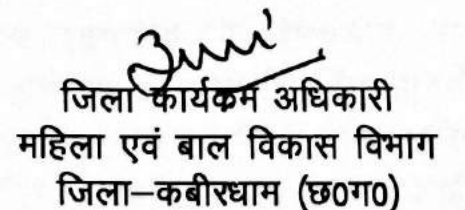 जिला कार्यकम अधिकारी
महिला एवं बाल विकास विभाग
जिला–कबीरधाम (छ0ग0)